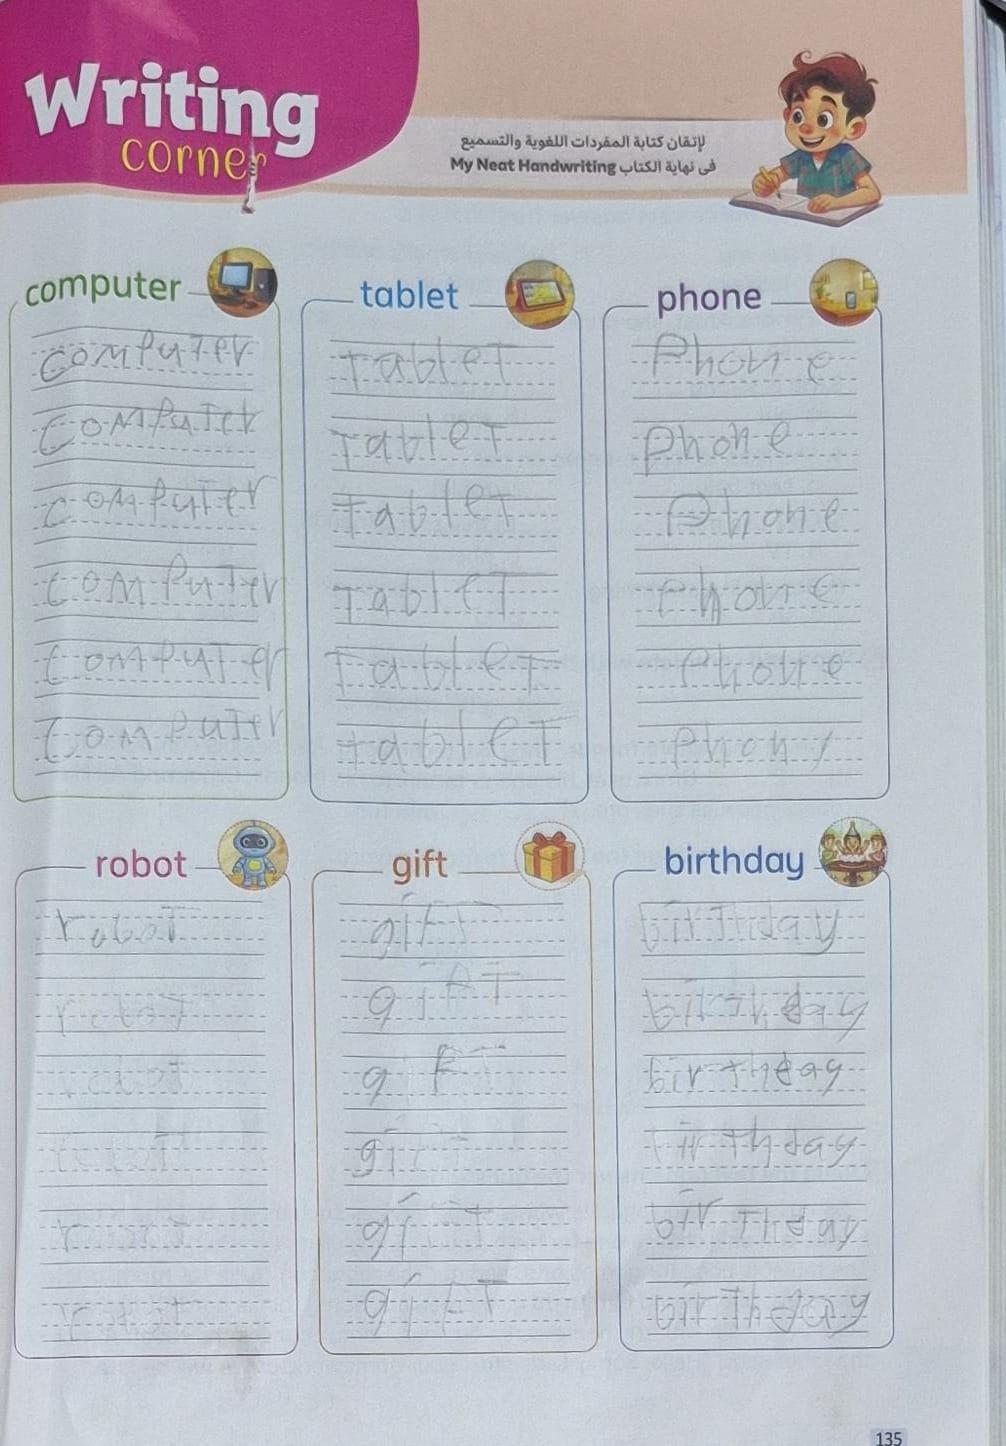 Writing
corner
لإتقان كتابة المفردات اللغوية والتسميع
فى نهاية الكتاب My Neat Handwriting
computer tablet phone
computer tablet phone
computer tablet phone
computer tablet phone
computer tablet phone
computer tablet phone
computer tablet phon
robot gift birthday
robot gift birthday
robot gift birthday
robot gift birthday
robot birthday
birthday
robot gift birthday
135